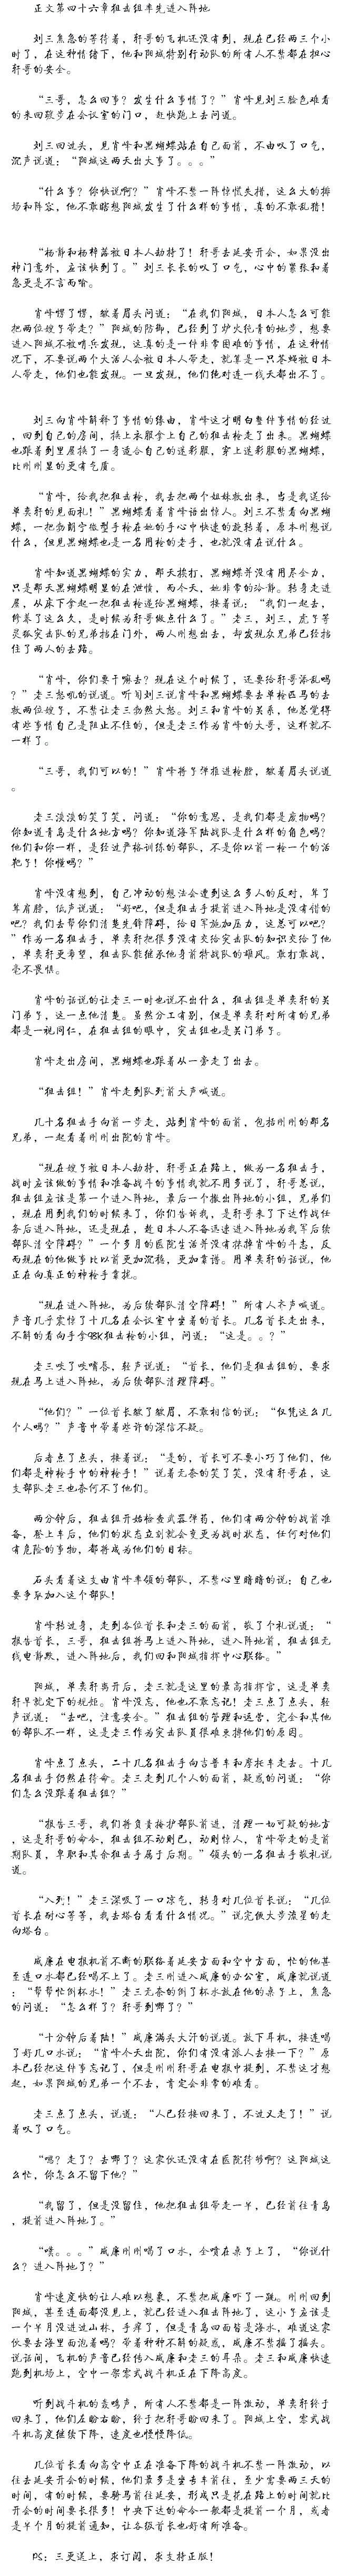 正文第四十六章狙击组率先进入阵地
刘三焦急的等待着，轩哥的飞机还没有到，现在已经两三个小
时了，在这种情绪下，他和阳城特别行动队的所有人不禁都在担心
轩哥的安全。
“三哥，怎么回事？发生什么事情了？”肖峰见刘三脸色难看
的来回散步在会议室的门口，赶快跑上去问道。
刘三回过头，见肖峰和黑蝴蝶站在自己面前，不由叹了口气，
沉声说道：“阳城这两天出大事了。。。”
“什么事？你快说啊？”肖峰不禁一阵惊慌失措，这么大的排
场和阵容，他不敢瞎想阳城发生了什么样的事情，真的不敢乱猜！
“杨静和杨梓菡被日本人劫持了！轩哥去延安开会，如果没出
神门意外，应该快到了。”刘三长长的叹了口气，心中的紧张和着
急更是不言而喻。
肖峰愣了愣，皱着眉头问道：“在我们阳城，日本人怎么可能
把两位嫂子带走？”阳城的防御，已经到了炉火纯青的地步，想要
进入阳城不被哨兵发现，这真的是一件非常困难的事情，在这种情
况下，不要说两个大活人会被日本人带走，就算是一只苍蝇被日本
人带走，他们也能发现。一旦发现，他们绝对连一线天都出不了。
刘三向肖峰解释了事情的缘由，肖峰这才明白整件事情的经过
，回到自己的房间，换上衣服拿上自己的狙击枪走了出来。黑蝴蝶
也跟着到里屋换了一身适合自己的迷彩服，穿上迷彩服的黑蝴蝶，
比刚刚显的更有气质。
“肖峰，给我把狙击枪，我去把两个姐妹救出来，当是我送给
单奕轩的见面礼！”黑蝴蝶看着肖峰语出惊人。刘三不禁看向黑蝴
蝶，一把勃朗宁微型手枪在她的手心中快速的旋转着，原本刚想说
什么，但见黑蝴蝶也是一名用枪的老手，也就没有在说什么。
肖峰知道黑蝴蝶的实力，那天挨打，黑蝴蝶并没有用尽全力，
只是那天黑蝴蝶明显的在泄愤，而今天，她非常的冷静。转身走进
屋，从床下拿起一把狙击枪递给黑蝴蝶，接着说：“我们一起去，
修养了这么久，是时候为轩哥做点什么了。”老三，刘三，虎子等
灵狐突击队的兄弟挡在门外，两人刚想出去，却发现众兄弟已经挡
住了两人的去路。
“肖峰，你们要干嘛去？现在这个时候了，还要给轩哥添乱吗
？”老三怒吼的说道。听闻刘三说肖峰和黑蝴蝶要去单枪匹马的去
救两位嫂子，不禁让老三勃然大怒。刘三和肖峰的关系，他总觉得
有些事情自己是阻止不住的，但是老三作为肖峰的大哥，这样就不
一样了。
“三哥，我们可以的！”肖峰将子弹推进枪膛，皱着眉头说道
。
老三淡淡的笑了笑，问道：“你的意思，是我们都是废物吗？
你知道青鸟是什么地方吗？你知道海军陆战队是什么样的角色吗？
他们和你一样，是经过严格训练的部队，不是你以前一枪一个的活
靶子！你懂吗？”
肖峰没有想到，自己冲动的想法会遭到这么多人的反对，耸了
耸肩膀，低声说道：“好吧，但是狙击手提前进入阵地是没有错的
吧？我们去帮你们清楚先锋障碍，给日军施加压力，这总可以吧？
”作为一名狙击手，单奕轩把很多没有交给突击队的知识交给了他
，单奕轩更希望，狙击队能继承他身前特战队的雄风。敢打敢战，
毫不畏惧。
肖峰的话说的让老三一时也说不出什么，狙击组是单奕轩的关
门弟子，这一点他清楚。虽然分工有别，但是单奕轩对所有的兄弟
都是一视同仁，在狙击组的眼中，突击组也是关门弟子。
肖峰走出房间，黑蝴蝶也跟着从一旁走了出去。
“狙击组！”肖峰走到队列前大声喊道。
几十名狙击手向前一步走，站到肖峰的面前，包括刚刚的那名
兄弟，一起看着刚刚出院的肖峰。
“现在嫂子被日本人劫持，轩哥正在路上，做为一名狙击手，
战时应该做的事情和准备战斗的事情我就不用多说了，轩哥总说，
狙击组应该是第一个进入阵地，最后一个撤出阵地的小组，兄弟们
，现在用到我们的时候来了，你们告诉我，是轩哥来了下达作战任
务后进入阵地，还是现在，趁日本人不备迅速进入阵地为我军后续
部队清空障碍？”一个多月的医院生活并没有抹掉肖峰的斗志，反
而现在的他做事比以前更加沉稳，更加靠谱。用单奕轩的话说，他
正在向真正的神枪手靠拢。
“现在进入阵地，为后续部队清空障碍！”所有人齐声喊道。
声音几乎震惊了十几名在会议室中坐着的首长。几名首长走出来，
不解的看向手拿98K狙击枪的小组，问道：“这是。。？”
老三咳了咳嗓音，轻声说道：“首长，他们是狙击组的，要求
现在马上进入阵地，为后续部队清理障碍。”
“他们？”一位首长皱了皱眉，不敢相信的说：“仅凭这么几
个人吗？”声音中带着些许的深信不疑。
后者点了点头，接着说：“是的，首长可不要小巧了他们，他
们都是神枪手中的神枪手！”说着无奈的笑了笑，没有轩哥在，这
支部队老三也奈何不了他们。
两分钟后，狙击组开始检查武器弹药，他们有两分钟的战前准
备，登上车后，他们的状态立刻就会变更为战时状态，任何对他们
有危险的事物，都将成为他们的目标。
石头看着这支由肖峰率领的部队，不禁心里暗暗的说：自己也
要争取加入这个部队！
肖峰转过身，走到各位首长和老三的面前，敬了个礼说道：“
报告首长，三哥，狙击组将马上进入阵地，进入阵地前，狙击组无
线电静默，进入阵地后，我们回和阳城指挥中心联络。”
阳城，单奕轩离开后，老三就是这里的最高指挥官，这是单奕
轩早就定下的规矩。肖峰没忘，他也不敢忘记！老三点了点头，轻
声说道：“去吧，注意安全。”狙击组的管理和运营，完全和其他
的部队不一样，这是老三作为突击队员很难束缚他们的原因。
肖峰点了点头，二十几名狙击手向吉普车和摩托车走去。十几
名狙击手仍然在待命。老三走到几个人的面前，疑惑的问道：“你
们怎么没跟着狙击组？”
“报告三哥，我们将负责掩护部队前进，清理一切可疑的地方
，这是轩哥的命令，狙击组不动则已，动则惊人，肖峰带走的是前
期队员，卑职和其余狙击手属于后期。”领头的一名狙击手敬礼说
道。
“入列！”老三深吸了一口凉气，转身对几位首长说：“几位
首长在耐心等等，我去塔台看看什么情况。”说完便大步流星的走
向塔台。
威廉在电报机前不断的联络着延安方面和空中方面，忙的他甚
至连口水都已经喝不上了。老三刚进入威廉的办公室，威廉就说道
：“帮帮忙倒杯水！”老三无奈的倒了杯水放在他的桌子上，焦急
的问道：“怎么样了？轩哥到哪了？”
“十分钟后着陆！”威廉满头大汗的说道。放下耳机，接连喝
了好几口水说：“肖峰今天出院，你们有没有派人去接一下？”原
本已经把这件事忘记了，但是刚刚轩哥在电报中提到，不禁这才想
起，如果阳城的兄弟一个不去，肯定会非常的难看。
老三点了点头，说道：“人已经接回来了，不过又走了！”说
着叹了口气。
“嗯？走了？去哪了？这家伙还没有在医院待够啊？这阳城这
么忙，你怎么不留下他？”
“我留了，但是没留住，他把狙击组带走一半，已经前往青鸟
，提前进入阵地了。”
“噗。。。”威廉刚刚喝了口水，全喷在桌子上了，“你说什
么？进入阵地了？”
肖峰速度快的让人难以想象，不禁把威廉吓了一跳。刚刚回到
阳城，甚至连面都没见上，就已经进入狙击阵地了，这小子应该是
一个半月没进过山林，手痒了，但是青鸟四面皆是海水，难道这家
伙要去海里面泡着吗？带着种种不解的疑惑，威廉不禁摇了摇头。
说话间，飞机的声音已经传入威廉和老三的耳朵。老三和威廉快速
跑到机场上，空中一架零式战斗机正在下降高度。
听到战斗机的轰鸣声，所有人不禁都是一阵激动，单奕轩终于
回来了，他们左盼右盼，终于把轩哥盼回来了。阳城上空，零式战
斗机高度继续下降，速度也慢慢降低。
几位首长看向高空中正在准备下降的战斗机不禁一阵激动，以
往去延安开会的时候，他们最多是坐吉车前往，至少需要两三天的
时间，有的时候，要骑马前往延安，形成只是花在路上的时间就比
开会的时间要长很多！中央下达的命令一般都是提前一个月，或者
是半个月的提前通知，让各级首长也好有所准备。
PS：三更送上，求订阅，求支持正版！